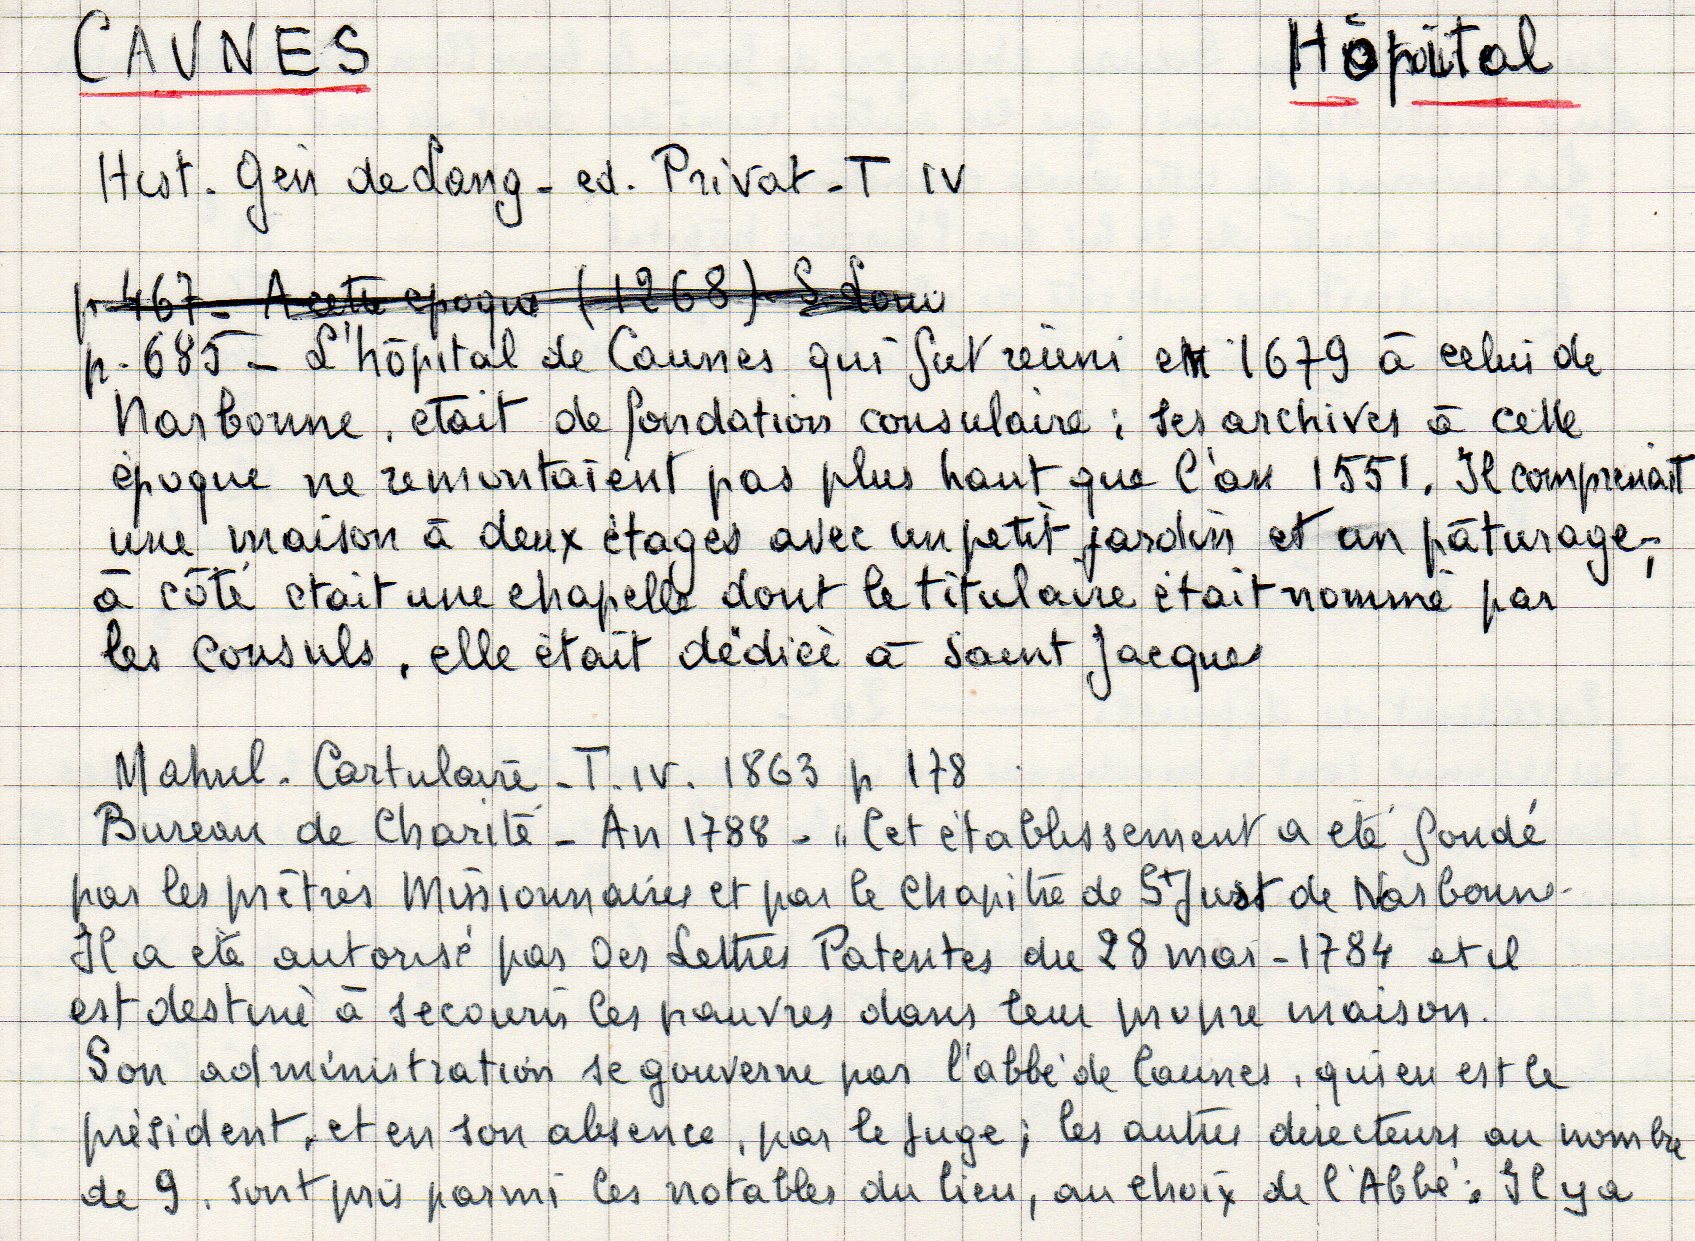 CAUNES Hôpital
Hist. Gén de Lang - ed. Privat - T IV
p. 467 - A cette époque (1268) - S. Loui
p. 685 - L'hôpital de Caunes qui fut réuni en 1679 à celui de
Narbonne, était de fondation consulaire ; ses archives à cette
époque ne remontaient pas plus haut que l'an 1551. Il comprenait
une maison à deux étages avec un petit jardin et un pâturage ;
à côté était une chapelle dont le titulaire était nommé par
les consuls, elle était dédiée à Saint Jacques
Mahul - Cartulaire - T. IV. 1863 p 178
Bureau de Charité - An 1788 - "Cet établissement a été fondé
par les prêtres Missionnaires et par le Chapitre de St Just de Narbonne.
Il a été autorisé par des Lettres Patentes du 28 mai - 1784 et il
est destiné à secourir les pauvres dans leur propre maison.
Son administration se gouverne par l'abbé de Caunes, qui en est le
président, et en son absence, par le juge ; les autres directeurs au nombre
de 9, sont pris parmi les notables du lieu, au choix de l'Abbé. Il y a